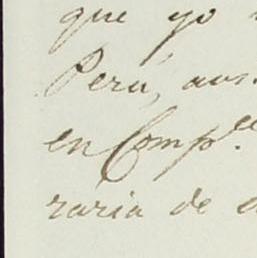 que yo
Perú, aus
en Comp.ª
raria de